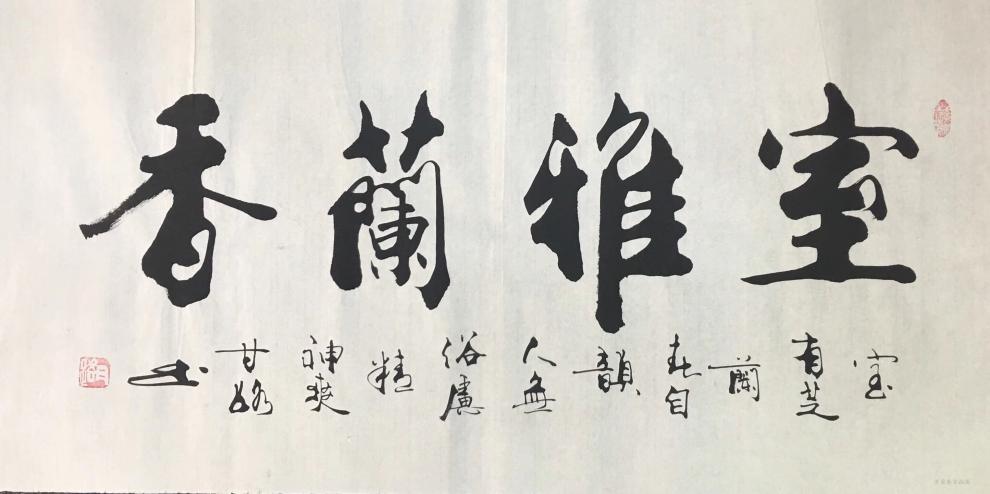 室雅蘭香
室有芝蘭春自韻人無俗慮精神爽
甘路书